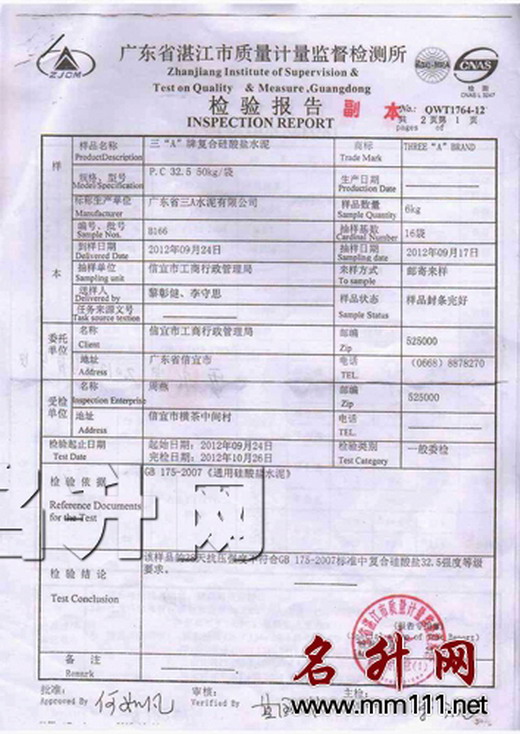 ZJCM
广东省湛江市质量计量监督检测所
Zhanjiang Institute of Supervision &
Test on Quality & Measure,Guangdong
CNAS
检验报告 副本
INSPECTION REPORT
No.: QWT1764-12
共 2 页第 1 页
pages of
样本
样品名称 三“A”牌复合硅酸盐水泥 商标 THREE “A” BRAND
ProductDescription Trade Mark
规格、型号 P.C 32.5 50kg/袋 生产日期
Model Specification Production Date
标称生产单位 广东省三A水泥有限公司 样品数量 6kg
Manufacturer Sample Quantity
编号、批号 B166 抽样基数 16袋
Sample Nos. Cardinal Number
到样日期 2012年09月24日 抽样日期 2012年09月17日
Delivered Date Sampling date
抽样单位 信宜市工商行政管理局 来样方式 邮寄来样
Sampling unit To sample
送样人 黎彰健、李守思 样品状态 样品封条完好
Delivered by Sample Status
任务来源文号
Task source textion
委托单位
名称 信宜市工商行政管理局 邮编 525000
Client Zip
地址 广东省信宜市 电话 (0668) 8878270
Address TEL.
受检单位
名称 周燕 邮编 525000
Inspection Enterprise Zip
地址 信宜市横茶中间村 电话
Address TEL.
检验起止日期 起始日期:2012年09月24日 检验类别 一般委检
Test Date 完检日期:2012年10月26日 Test Category
检验依据 GB 175-2007《通用硅酸盐水泥》
Reference Documents
for the Test
该样品的28天抗压强度不符合GB 175-2007标准中复合硅酸盐32.5强度等级
要求。
检验结论
Test Conclusion
备注
Remark
批准: 审核: 主检:
Approved By Verified By
名升网
www.mm111.net